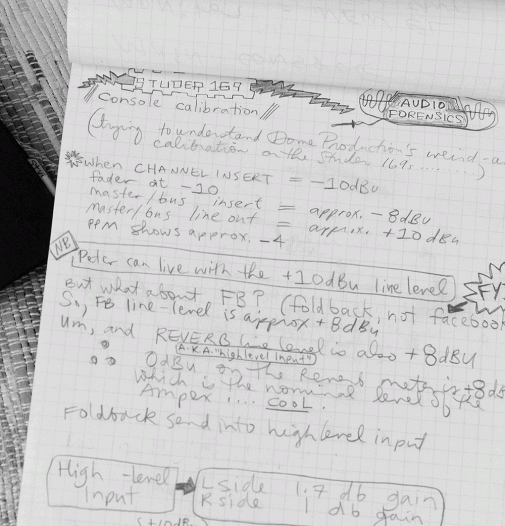 STUDER 169
AUDIO
FORENSICS
Console calibration
(trying to understand Dome Production's weird-a
calibration on the Studer 169s........)
When CHANNEL INSERT = -10dBu
fader at -10
master/bus insert = approx. -8dBu
master/bus line out = approx. +10dBu
PPM shows approx. -4
NB
Peter can live with the +10dBu line level
FY
But what about FB? (foldback, not facebook
So, FB line-level is approx +8dBu
Um, and REVERB line level is also +8dBu
(A.K.A. "high level input")
0dBu on the Reverb meter is +8dB
which is the nominal level of the
Ampex .... COOL.
Foldback send into high level input
High-level
input
L side 1.7 db gain
R side 1 db gain
(+10dBu